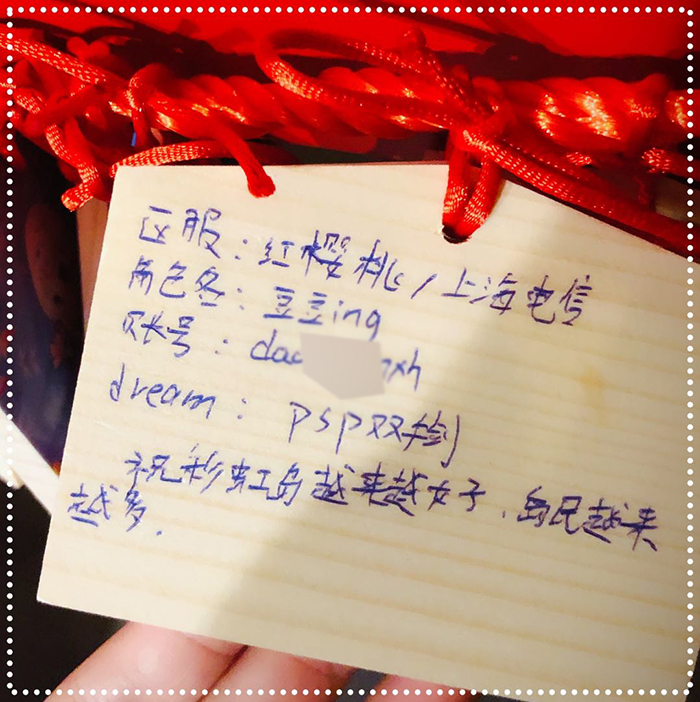 区服：红樱桃/上海电信
角色名：豆豆ing
账号：dao nxh
dream：psp双剑
祝彩虹岛越来越好，岛民越来
越多.